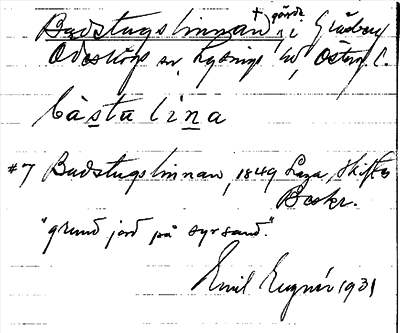 Badstugslinnan, + gärde i Gräsberg
Odeshögs sn, Lysings hd, Österg. l.
bàsta lina
#7 Badstugslinnan, 1849 Laga Skiftes
Beskr.
"grund jord på syrsand."
Emil Eugnér 1931